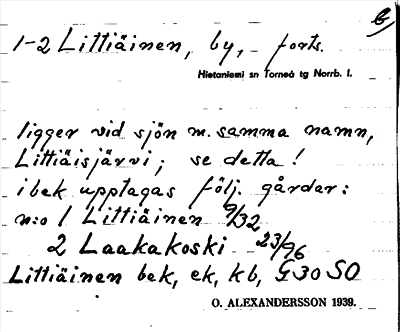 1-2 Littiäinen, by, forts.
Hietaniemi sn Torneå tg Norrb. l.
ligger vid sjön m. samma namn,
Littiäisjärvi; se detta!
i bek upptagas följ. gårdar:
n:o 1 Littiäinen 9/32
2 Laakakoski 23/96
Littiäinen bek, ek, kb, G30 SO
O. ALEXANDERSSON 1939.